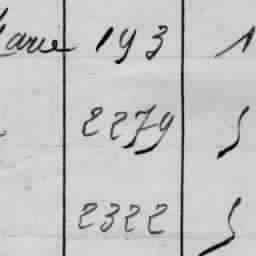 Marie 193 1
2279 S
2322 S